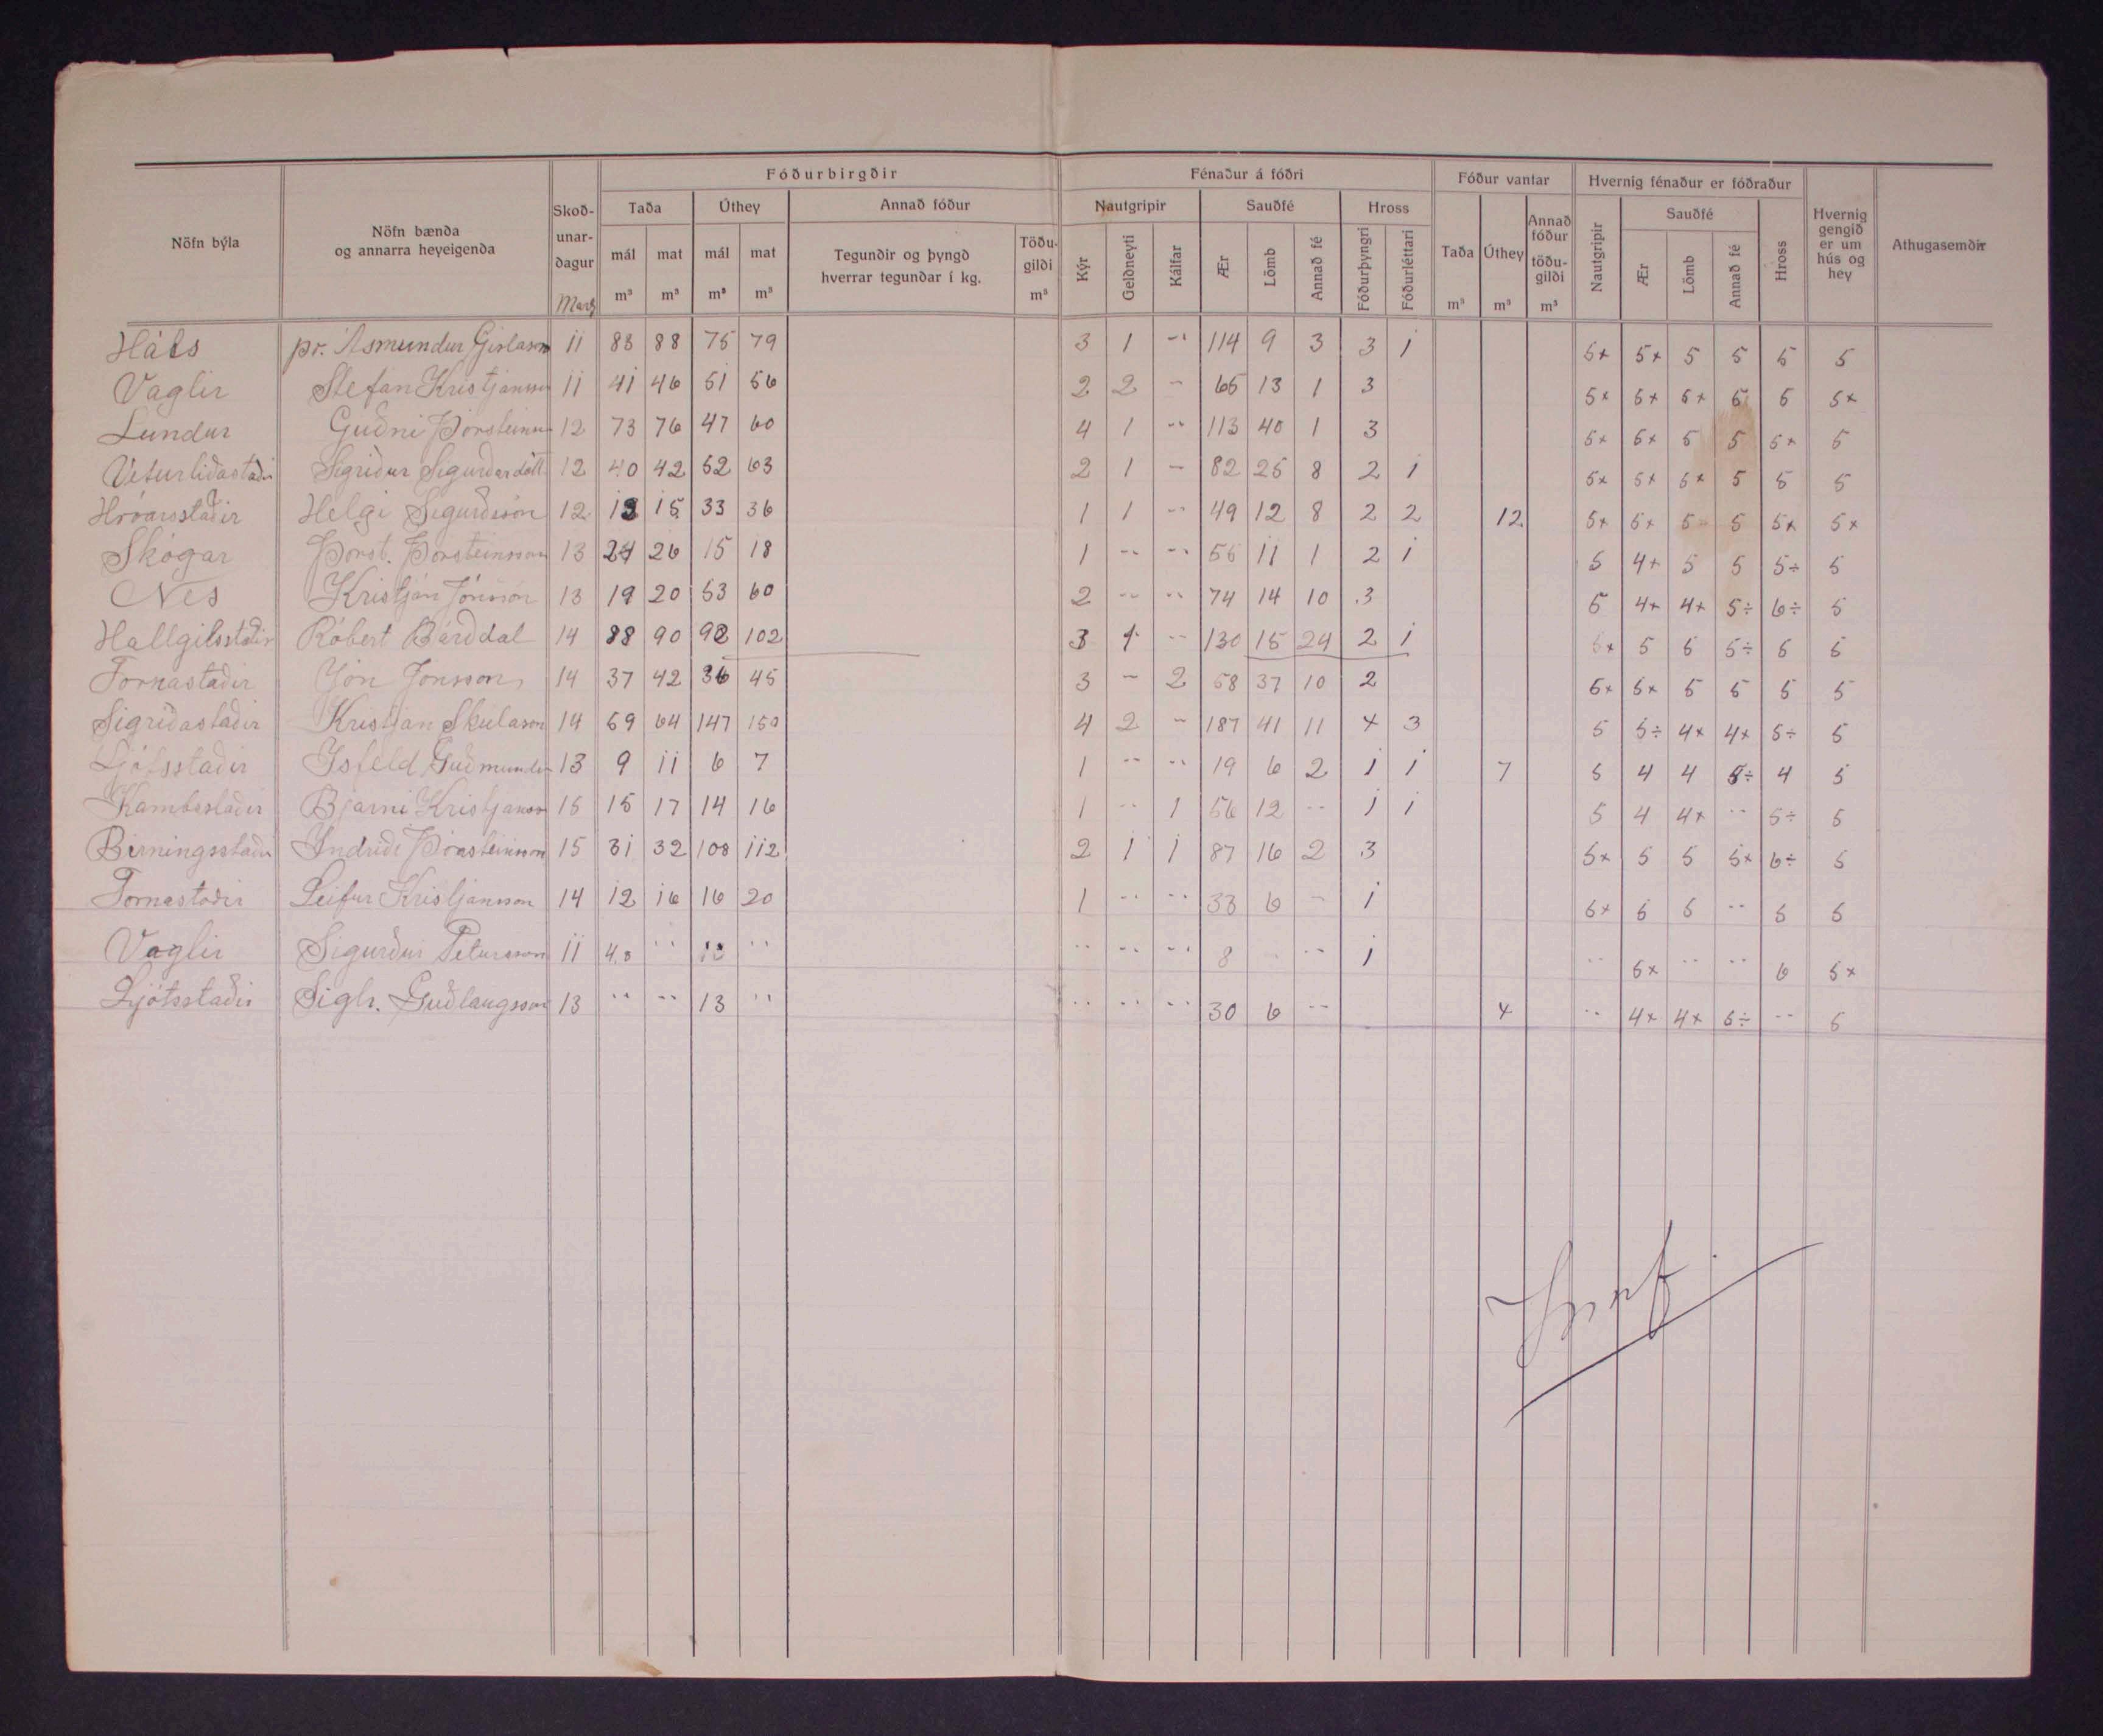 Fóðurbirgðir Fénaður á fóðri Fóður vantar Hvernig fénaður er fóðraður
Nöfn býla Nöfn bænda og annarra heyeigenda Skoð-unar-dagur Taða Úthey Annað fóður Nautgripir Sauðfé Hross Taða Úthey Annað fóður töðu-gildi Nautgripir Sauðfé Hross Hvernig gengið er um hús og hey Athugasemdir
mál mat mál mat Tegundir og þyngd hverrar tegundar í kg. Töðu-gildi Kýr Geldneyti Kálfar Ær Lömb Annað fé Fóðurþyngri Fóðurléttari Ær Lömb Annað fé
Marz m³ m³ m³ m³ m³ m³ m³ m³
Háls pr. Ásmundur Gíslason 11 83 88 75 79 3 1 -- 114 9 3 3 1 5+ 5+ 5 5 5 5
Vaglir Stefan Kristjansson 11 41 46 51 56 2 2 - 65 13 1 3 5+ 5+ 5+ 5 5 5+
Lundur Guðni Þorsteinss 12 73 76 47 60 4 1 -- 113 40 1 3 5+ 5+ 5 5 5+ 5
Veturliðastaðir Sigriður Sigurðardótt 12 40 42 52 63 2 1 - 82 25 8 2 1 5+ 5+ 5+ 5 5 5
Hróarsstaðir Helgi Sigurðsson 12 13 15 33 36 1 1 -- 49 12 8 2 2 12 5+ 5+ 5 5 5+ 5+
Skógar Þorst. Þorsteinsson 13 24 26 15 18 1 -- -- 55 11 1 2 1 5 4+ 5 5 5÷ 5
Nes Kristján Jónsson 13 19 20 53 60 2 -- -- 74 14 10 3 5 4+ 4+ 5÷ 6÷ 5
Hallgilsstaðir Róbert Bárðdal 14 88 90 98 102 3 1 -- 130 15 24 2 1 5+ 5 5 5÷ 5 5
Fornastaðir Jón Jónsson 14 37 42 36 45 3 - 2 58 37 10 2 5+ 5+ 5 5 5 5
Sigriðastaðir Kristjan Skulason 14 59 64 147 150 4 2 - 187 41 11 4 3 5 5÷ 4+ 4+ 5÷ 5
Ljótsstaðir Isfeld Guðmunds 13 9 11 6 7 1 -- -- 19 6 2 1 1 7 5 4 4 5÷ 4 5
Kambsstaðir Bjarni Kristjanss 15 15 17 14 16 1 -- 1 56 12 -- 1 1 5 4 4+ -- 5÷ 5
Birningsstaðir Indriði Þorsteinsson 15 31 32 108 112 2 1 1 87 16 2 3 5+ 5 5 5+ 6÷ 5
Fornastaðir Leifur Kristjansson 14 12 16 16 20 1 -- -- 33 6 - 1 5+ 5 5 -- 5 5
Vaglir Sigurður Petursson 11 4.8 -- -- -- -- -- 8 -- -- 1 -- 5+ -- -- 6 5+
Ljótsstaðir Sigh. Guðlaugsson 13 -- -- 13 -- -- -- -- 30 6 -- 4 -- 4+ 4+ 5÷ -- 5